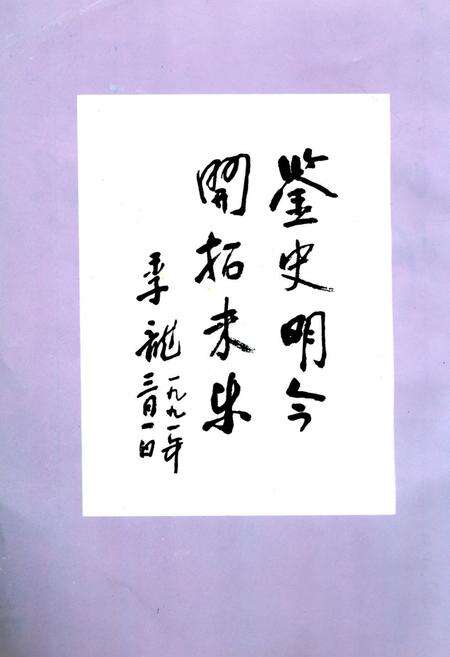 鉴史明今
開拓未来
王季龍
一九九一年
三月一日